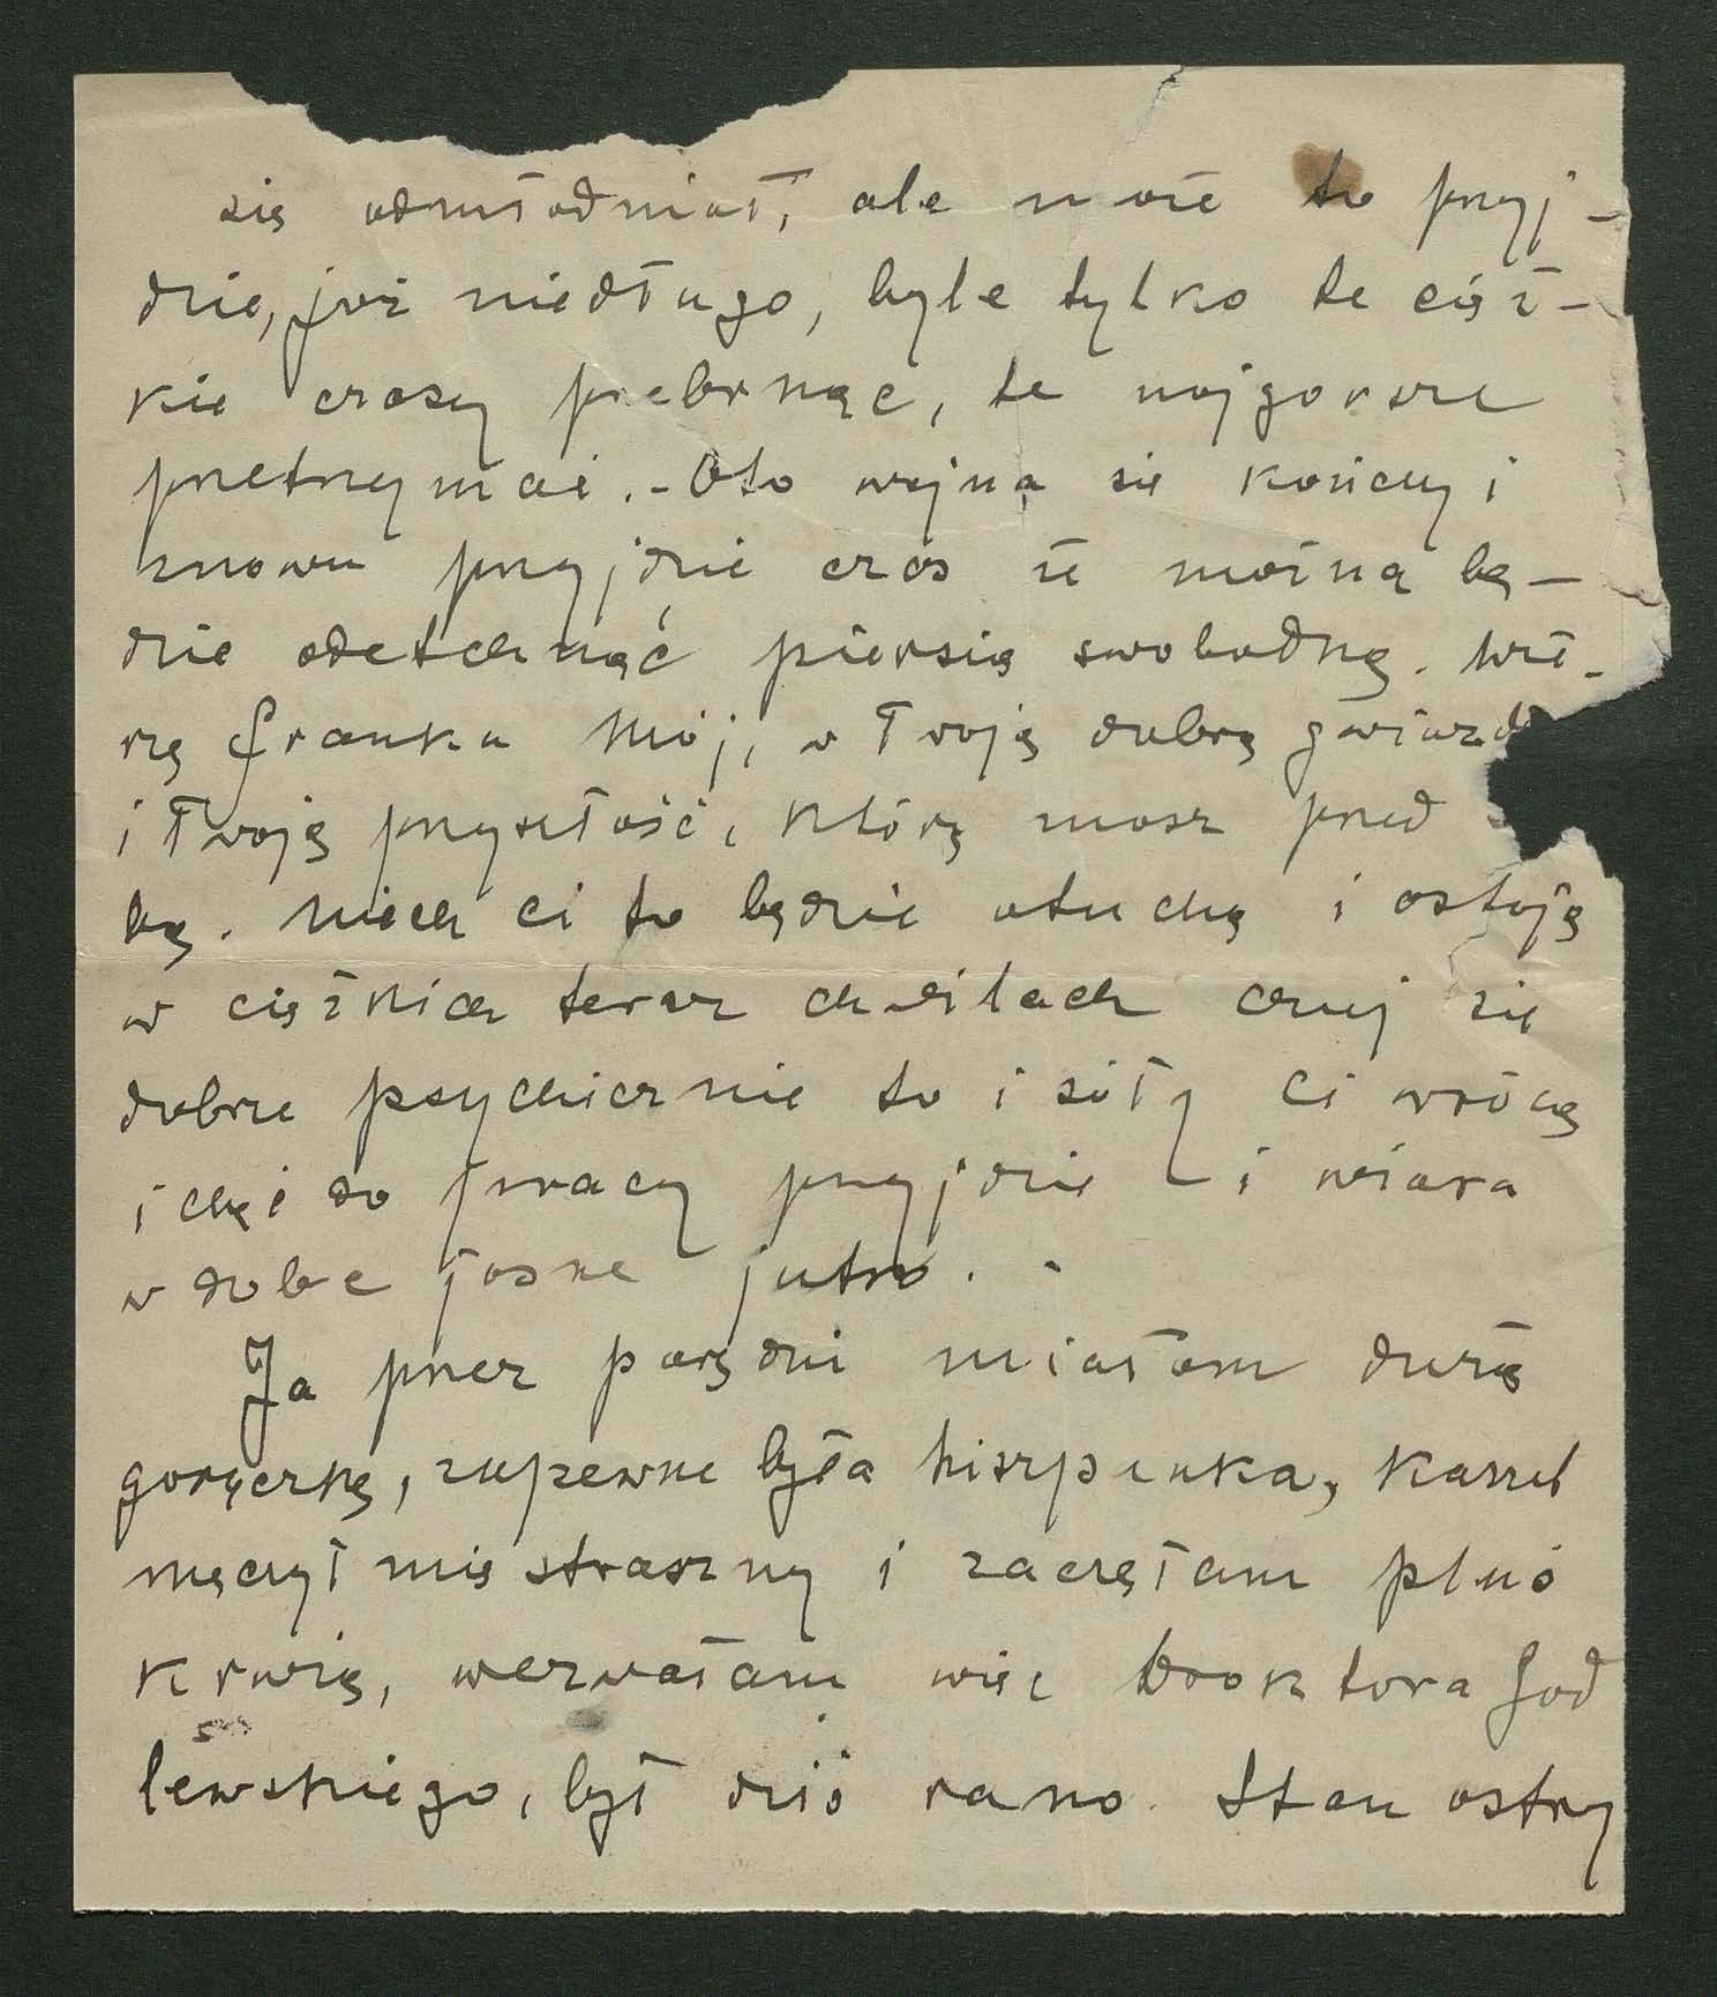 się odmłodniał, ale może to przyj-
dzie, już niedługo, byle tylko te cięż-
kie czasy przebrnąć, te najgorsze
przetrzymać. - Oto wojna się kończy i
znowu przyjdzie czas że można bę-
dzie odetchnąć piersią swobodną. Wie-
rzę Franku Mój, w Twoją dobrą gwiazd
i Twoją przyszłość, którą masz przed
bą. Niech ci to będzie otuchą i ostoją
w ciężkich teraz chwilach czuj się
dobrze psychicznie to i siły Ci wrócą
i chęć do pracy przyjdzie i wiara
w dobre jasne jutro. -
Ja przez parę dni miałam dużą
gorączkę, zapewne była hiszpanka, Kaszel
męczył mię straszny i zaczęłam pluć
krwią, wezwałam więc Dooktora God
lewskiego, był dziś rano. Stan ostry